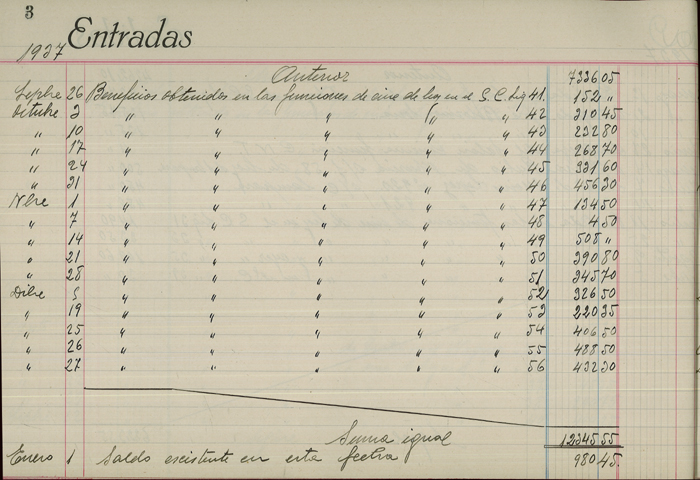 3
1937 Entradas
Anterior 7336 05
Septbre 26 Beneficios obtenidos en las funciones de cine de hoy en el S. C. Liq 41. 152 "
Octubre 3 " " " " " 42 310 45
" 10 " " " " " 43 232 80
" 17 " " " " " 44 268 70
" 24 " " " " " 45 331 60
" 31 " " " " " 46 456 30
Nbre 1 " " " " " 47 134 50
" 7 " " " " " 48 4 50
" 14 " " " " " 49 508 "
" 21 " " " " " 50 390 80
" 28 " " " " " 51 345 70
Dibre 5 " " " " " 52 326 50
" 19 " " " " " 53 220 35
" 25 " " " " " 54 406 50
" 26 " " " " " 55 488 50
" 27 " " " " " 56 432 30
Suma igual 12345 55
Enero 1 Saldo existente en esta fecha 980 45.